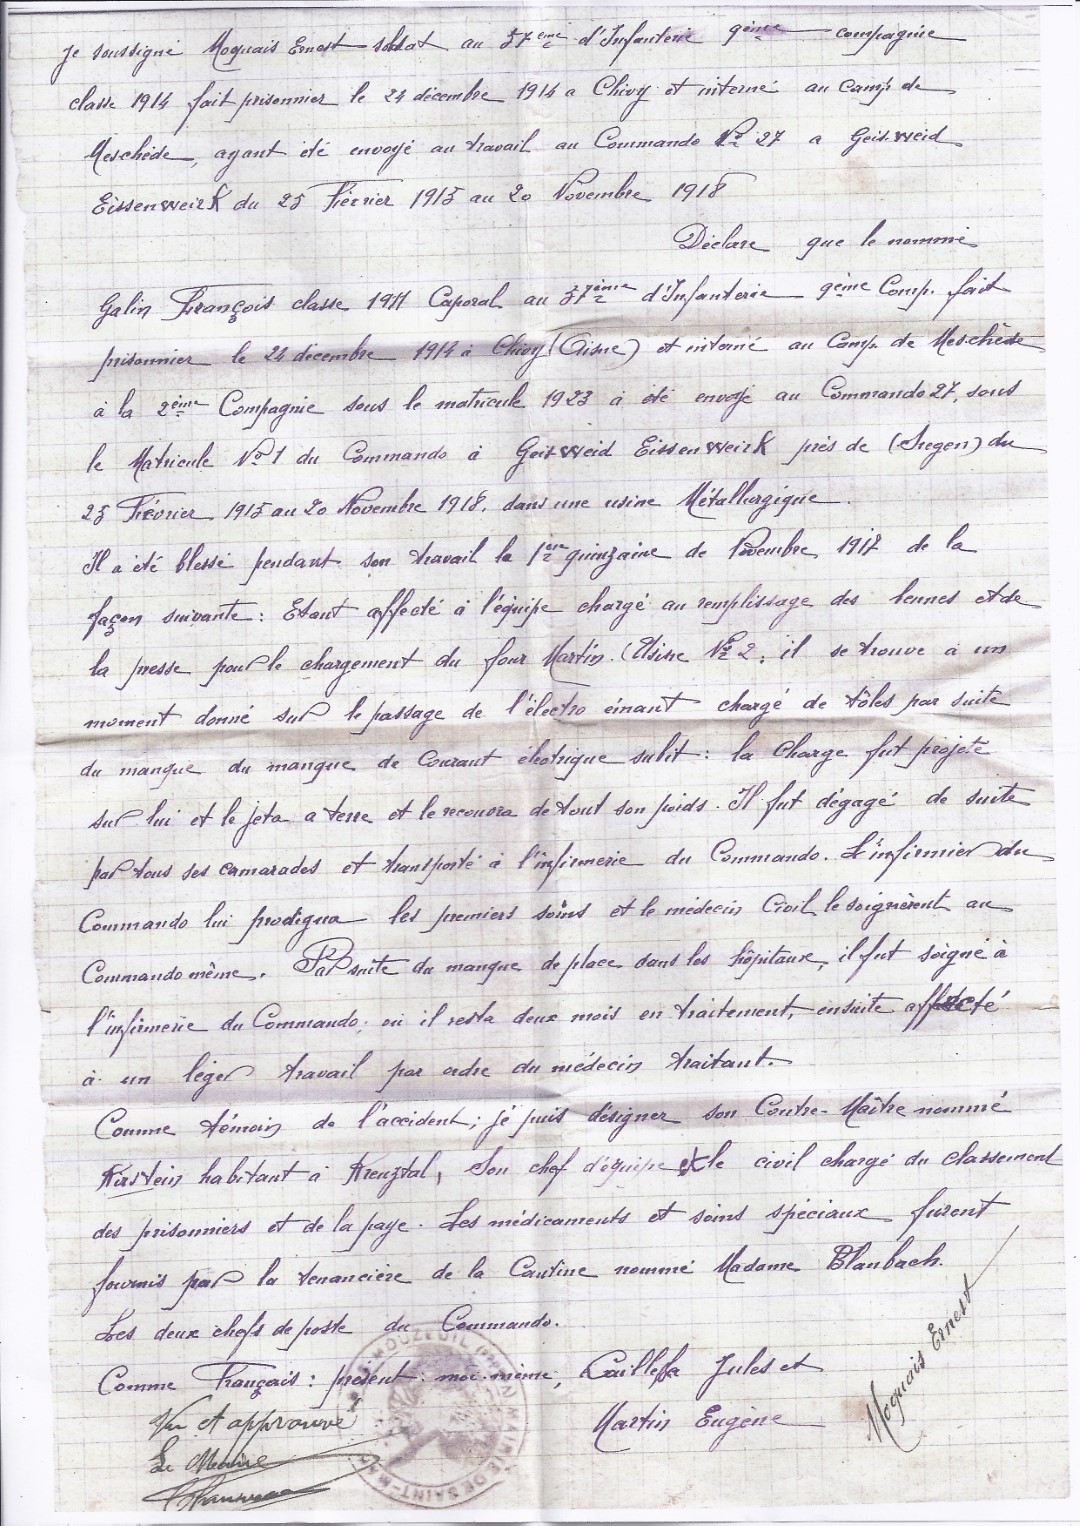 Je soussigné Moquais Ernest soldat au 37ème d'Infanterie 9ème compagnie
classe 1914 fait prisonnier le 24 décembre 1914 a Chivy et interné au camp de
Meschède, ayant été envoyé au travail au Commando No 27 a Geisweid
Eissenweirk du 25 Février 1915 au 20 Novembre 1918
Déclare que le nommé
Galin François classe 1911 Caporal au 37ième d'Infanterie 9ème Comp. fait
prisonnier le 24 décembre 1914 à Chivy (Aisne) et interné au Camp de Meschède
à la 2ème Compagnie sous le matricule 1923 à été envoyé au Commando 27, sous
le Matricule No 1 du Commando à Geisweid Eissenweirk près de (Siegen) du
25 Février 1915 au 20 Novembre 1918, dans une usine Métallurgique.
Il a été blessé pendant son travail la 1ère quinzaine de Novembre 1917 de la
façon suivante : Etant affecté à l'équipe chargé au remplissage des bennes et de
la presse pour le chargement du four Martin. (Usine No 2, il se trouve à un
moment donné sur le passage de l'électro éinant chargé de tôles par suite
du manque du manque de Courant électrique subit : la Charge fut projeté
sur lui et le jeta a terre et le recouvra de tout son poids. Il fut dégagé de suite
par tous ses camarades et transporté à l'infirmerie du Commando. L'infirmier du
Commando lui prodigua les premiers soins et le médecin Civil le soignèrent au
Commando même. Par suite du manque de place dans les hôpitaux, il fut soigné à
l'infirmerie du Commando, où il resta deux mois en traitement, ensuite affecté
à un léger travail par ordre du médecin traitant.
Comme témoin de l'accident ; je puis désigner son Contre-Maître nommé
Kirstein habitant à Kreuztal, Son chef d'équipe et le civil chargé du classement
des prisonniers et de la paye. Les médicaments et soins spéciaux furent
fournis par la tenancière de la Cantine nommé Madame Blanbach.
Les deux chefs de poste du Commando.
Comme Français : présent moi-même, Jules et
Martin Eugène
Moquais Ernest
Vu et approuvé
Le Maire
MAIRIE DE SAINT-